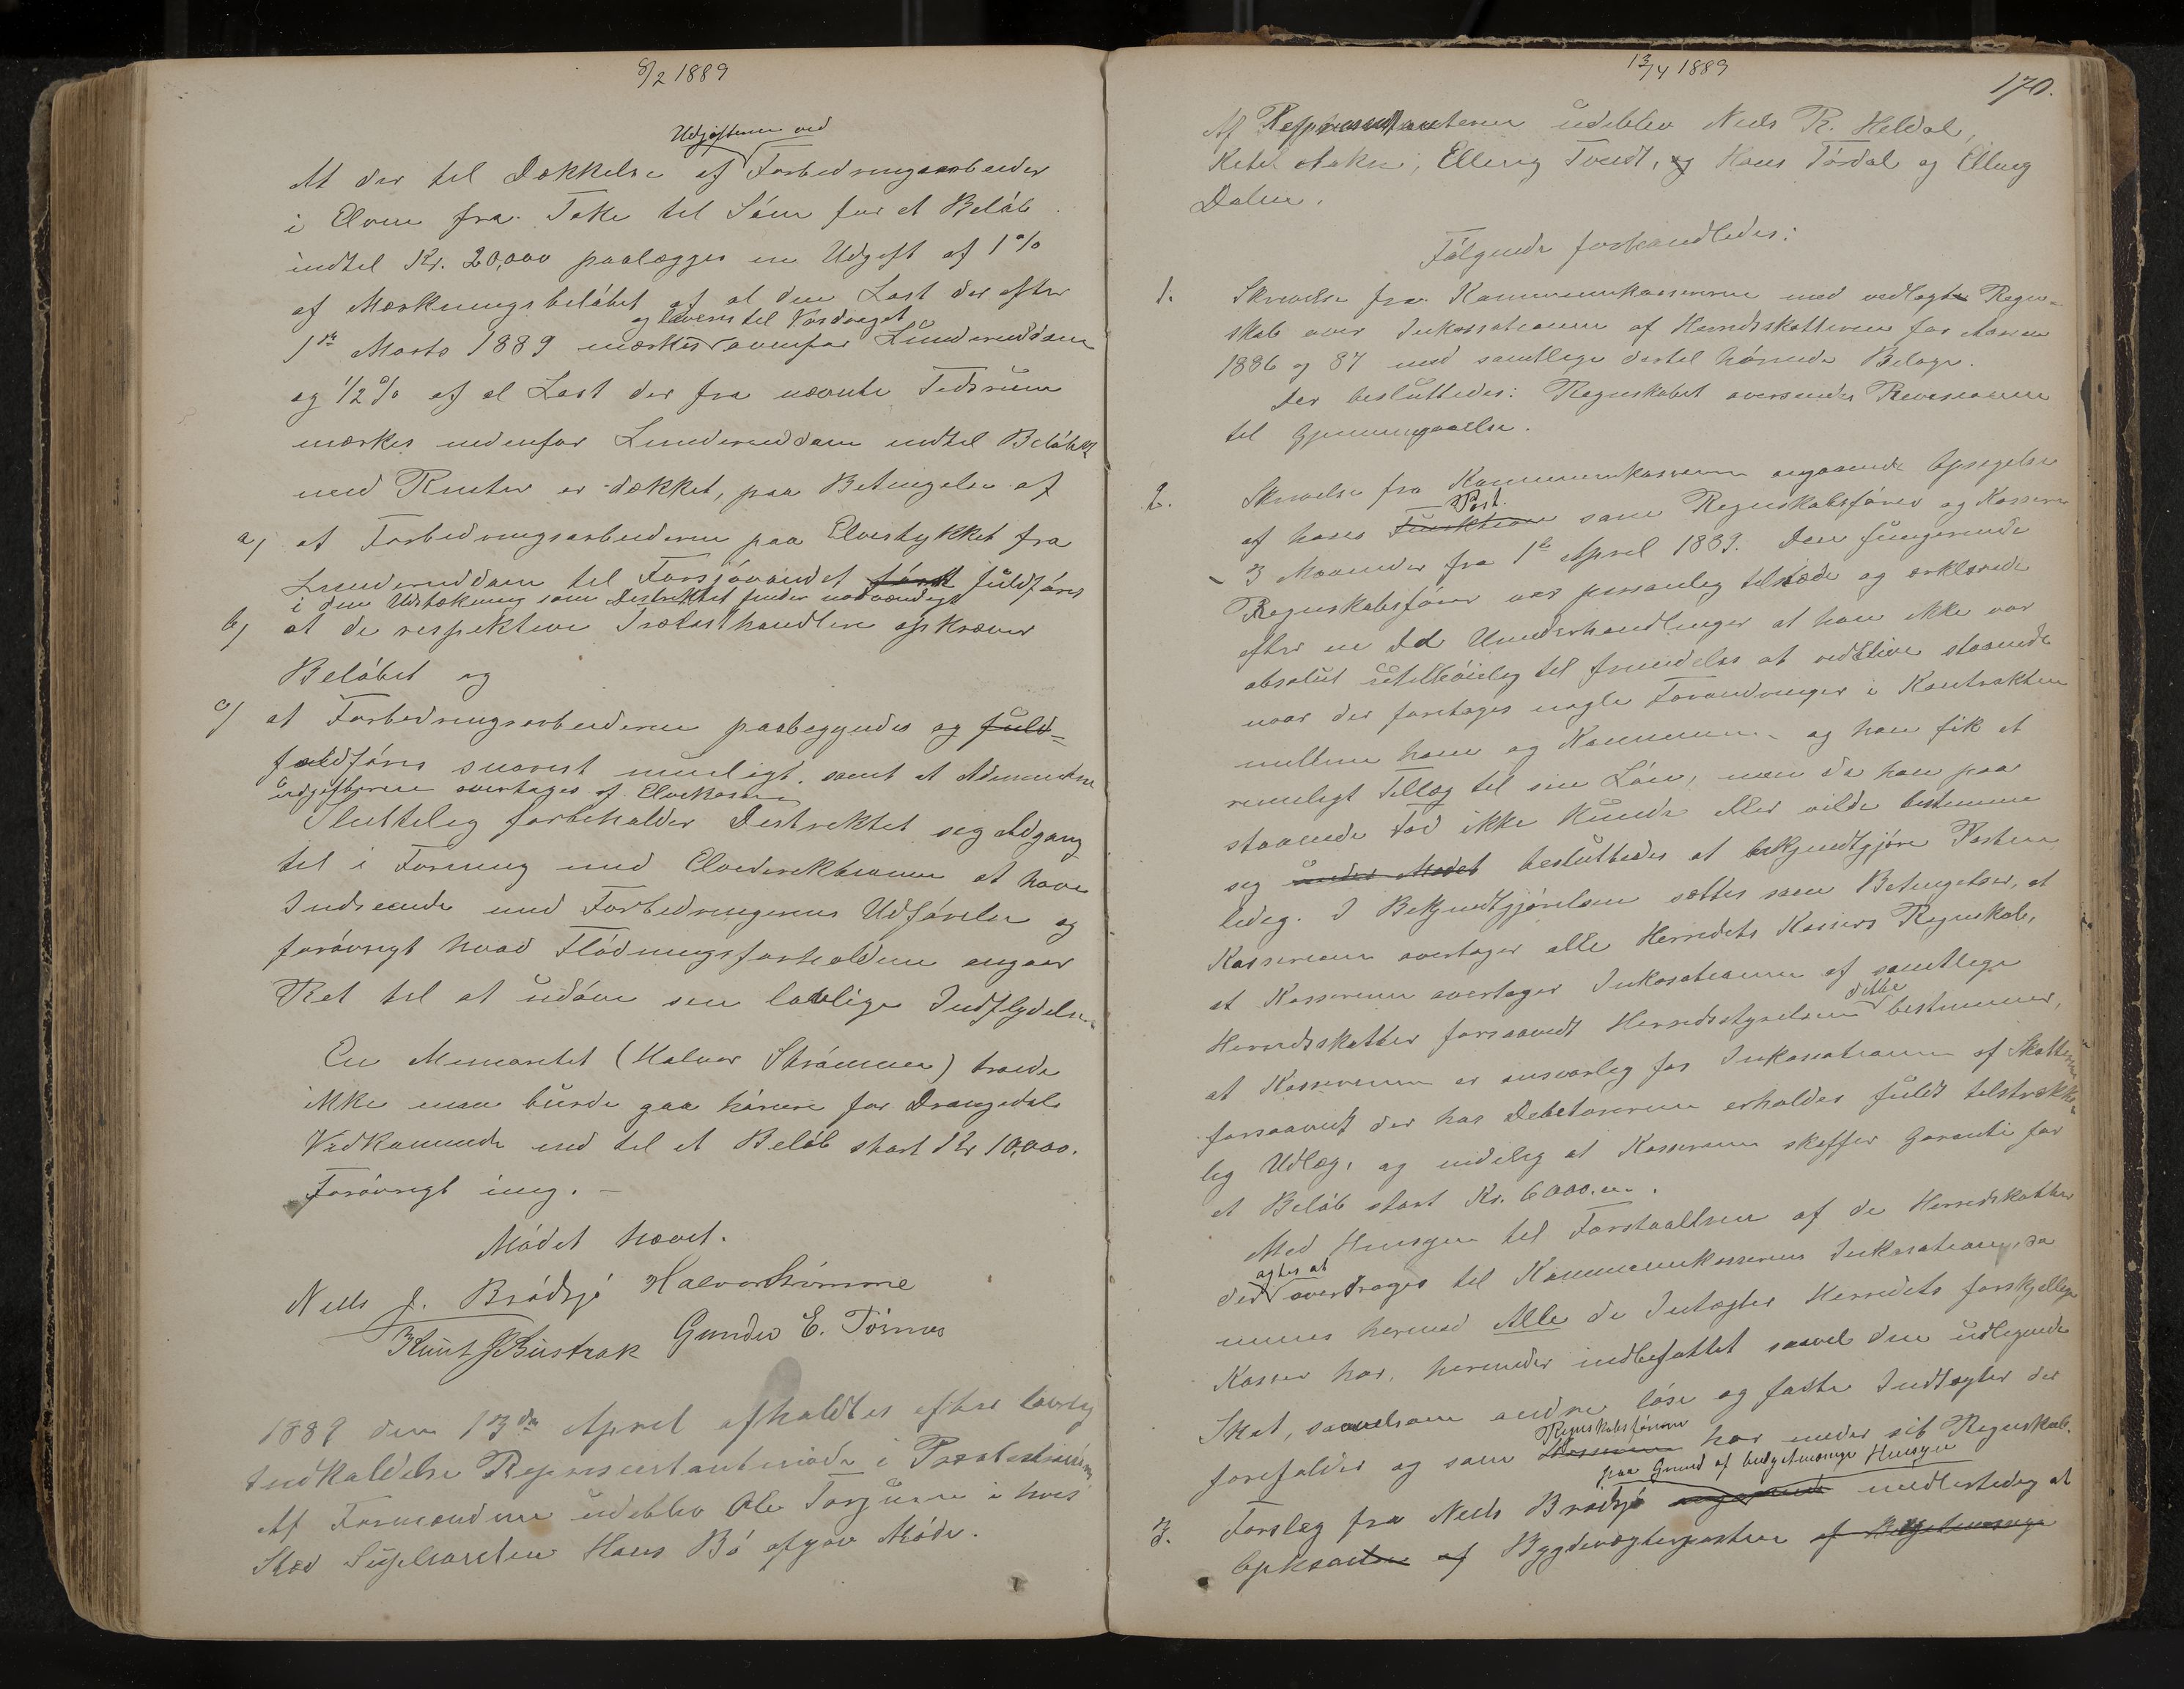 8/2 1889
Udgifterne ved
At der til Dækkelse af Forbedringsarbeider
i Elven fra Toke til Søen for et Beløb
indtil Kr. 20,000 paalægges en Udgift af 1%
af Mærkningsbeløbet af al den Last der efter
og leveres til Vasdraget
1ste Marts 1889 mærkes ovenfor Lundereiddam
og 1/2% af al Last der fra nævnte Tidsrum
mærkes nedenfor Lundereiddam indtil Beløbet
med Renter er dækket, paa Betingelse af
a) at Forbedringsarbeiderne paa Elvestykket fra
Lundereiddam til Farsjøvandet først fuldføres
i den Udstrækning som Distriktet finder nødvendigt
b) at de respektive Trælasthandlere opkræver
Beløbet og
c) at Forbedringsarbeiderne paabegyndes og fuld-
fuldføres snarest muligt. samt at Administra
udgifterne overtages af Elvekassen
Sluttelig forbeholder Distriktet sig Adgang
til i Forening med Elvedirektionen at have
Indseende med Forbedringernes Udførelse og
forøvrigt hvad Flødningsforholdene angaar
Ret til at udøve sin lovlige Indflydelse.
En Minoritet (Halvor Strømme) troede
ikke man burde gaa høiere for Drangedals
Vedkommende end til et Beløb stort Kr 10,000.
Forøvrigt enig. –
Mødet hævet.
Nells J. Brødsjø Halvor Strømme
Knut J Bustrak Gunder E. Törnes
1889 den 13de April afholdtes efter lovlig
Indkaldelse Repræsentantmøde i Præstestuen
Af Formændene udeblev Ole Torjusen i hvis
Sted Supleanten Hans Bø afgav Møde.
13/4 1889
170.
Af Repræsentanterne udeblev Niels R. Heldal,
Ketil Aaken, Elling Tvedt, og Hans Tørdal og Elling
Dalen.
Følgende forhandledes:
1. Skrivelse fra Kommunekassereren med vedlagte Regn-
skab over Inkassationen af Herredsskatterne for Aarene
1886 og 87 med samtlige dertil hørende Bilage.
Der besluttedes: Regnskabet oversendes Revisionen
til Gjennemgaaelse.
2. Skrivelse fra Kommunekassereren angaaende Opsigelse
Post.
af hans Funktion som Regnskabsfører og Kasserer
3 Maaneder fra 1ste April 1889. Den fungerende
Regnskabsfører var personlig tilstede og erklærede
efter en Del Underhandlinger at han ikke var
absolut utilbøielig til fremdeles at vedblive staaende
naar der foretages nogle Forandringer i Kontrakten
mellem ham og Kommunen og han fik et
rimeligt Tillæg til sin Løn, men da han paa
staaende Fod ikke kunde eller vilde bestemme
sig under Mødet besluttedes at bekjendtgjøre Posten
ledig. I Bekjendtgjørelsen sættes som Betingelser, at
Kassereren overtager alle Herredets Kassers Regnskab,
at Kassereren overtager Inkasationen af samtlige
dette
Herredsskatter forsaavidt Herredsstyrelsen bestemmer,
at Kassereren er ansvarlig for Inkassationen af Skatterne
forsaavidt der hos Debitorerne erholdes fuldt tilstrække-
lig Udlæg, og endelig at Kassereren skaffer Garanti for
et Beløb stort Kr. 6000.00.
Med Hensyn til Forstaaelsen af de Herredskatter
agtes at
der overdrages til Kommunekassererens Inkasation, da
menes hermed Alle de Indtægter Herredets forskjellige
Kasser har, herunder indbefattet saavel den udlignede
Skat, saavelsom andre løse og faste Indtægter der
Regnskabsføreren
forefalder og som Kassereren har under sit Regnskab.
paa Grund af budgetmæssige Hensyn
3. Forslag fra Niells Brødsjø angaaende midlertidig at
Opkaa af Bygdevægterposten af Budgetmæssige